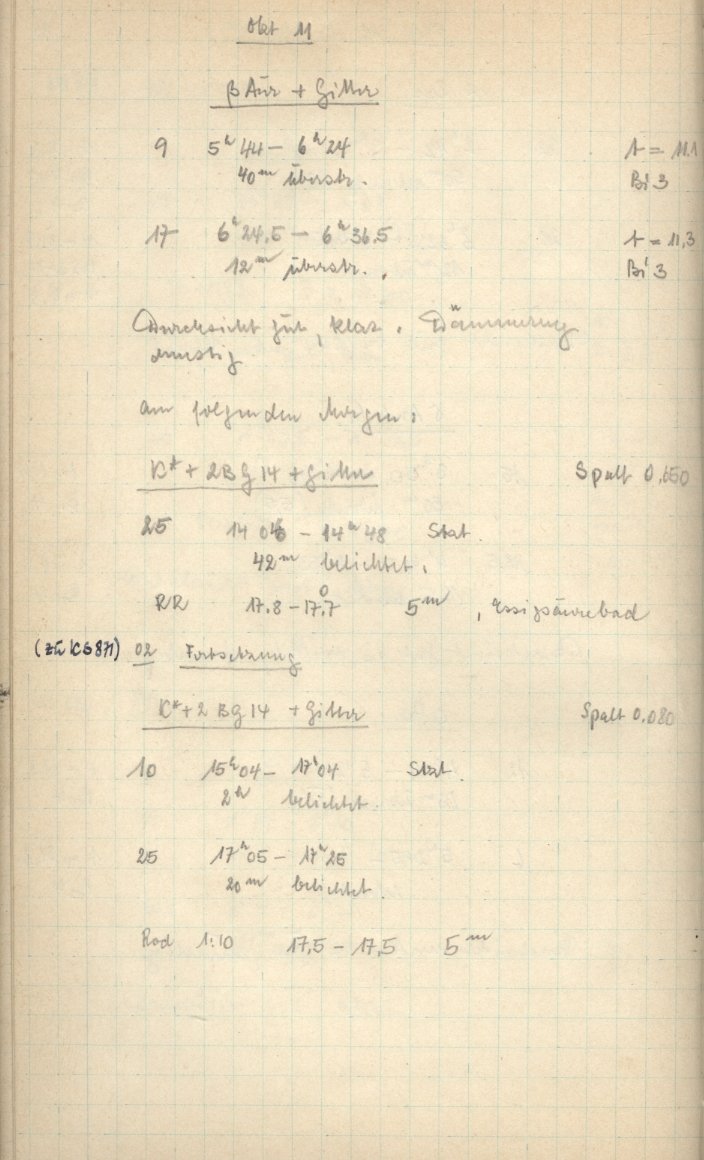 Okt 11
β Aur + Gitter
9 5ʰ44 – 6ʰ24 t = 11.1
40ᵐ überstr. Bi 3
17 6ʰ24.5 – 6ʰ36.5 t = 11,3
12ᵐ überstr. Bi 3
Durchsicht gut, klar. Dämmerung
dunstig.
Am folgenden Morgen:
K* + 2BG14 + Gitter Spalt 0.050
25 14 06 – 14ʰ48 Stat.
42ᵐ belichtet.
RR 17.8 – 17.⁰7 5ᵐ, Essigsäurebad
(zu KS871) 02 Fortsetzung
K* + 2 BG 14 + Gitter Spalt 0.080
10 15ʰ04 – 17ʰ04 Stat.
2ʰ belichtet.
25 17ʰ05 – 17ʰ25
20ᵐ belichtet.
Rod 1:10 17,5 – 17,5 5ᵐ